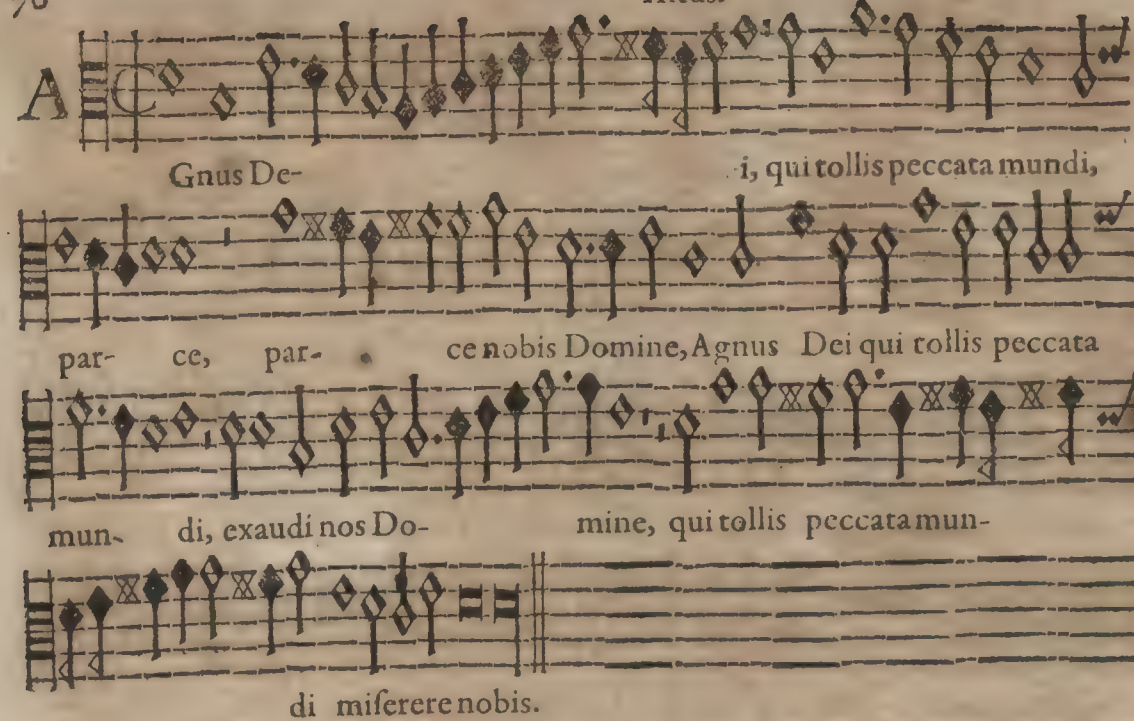 A
Gnus De- i, qui tollis peccata mundi,
par- ce, par- ce nobis Domine, Agnus Dei qui tollis peccata
mun- di, exaudi nos Do- mine, qui tollis peccata mun-
di miſerere nobis.